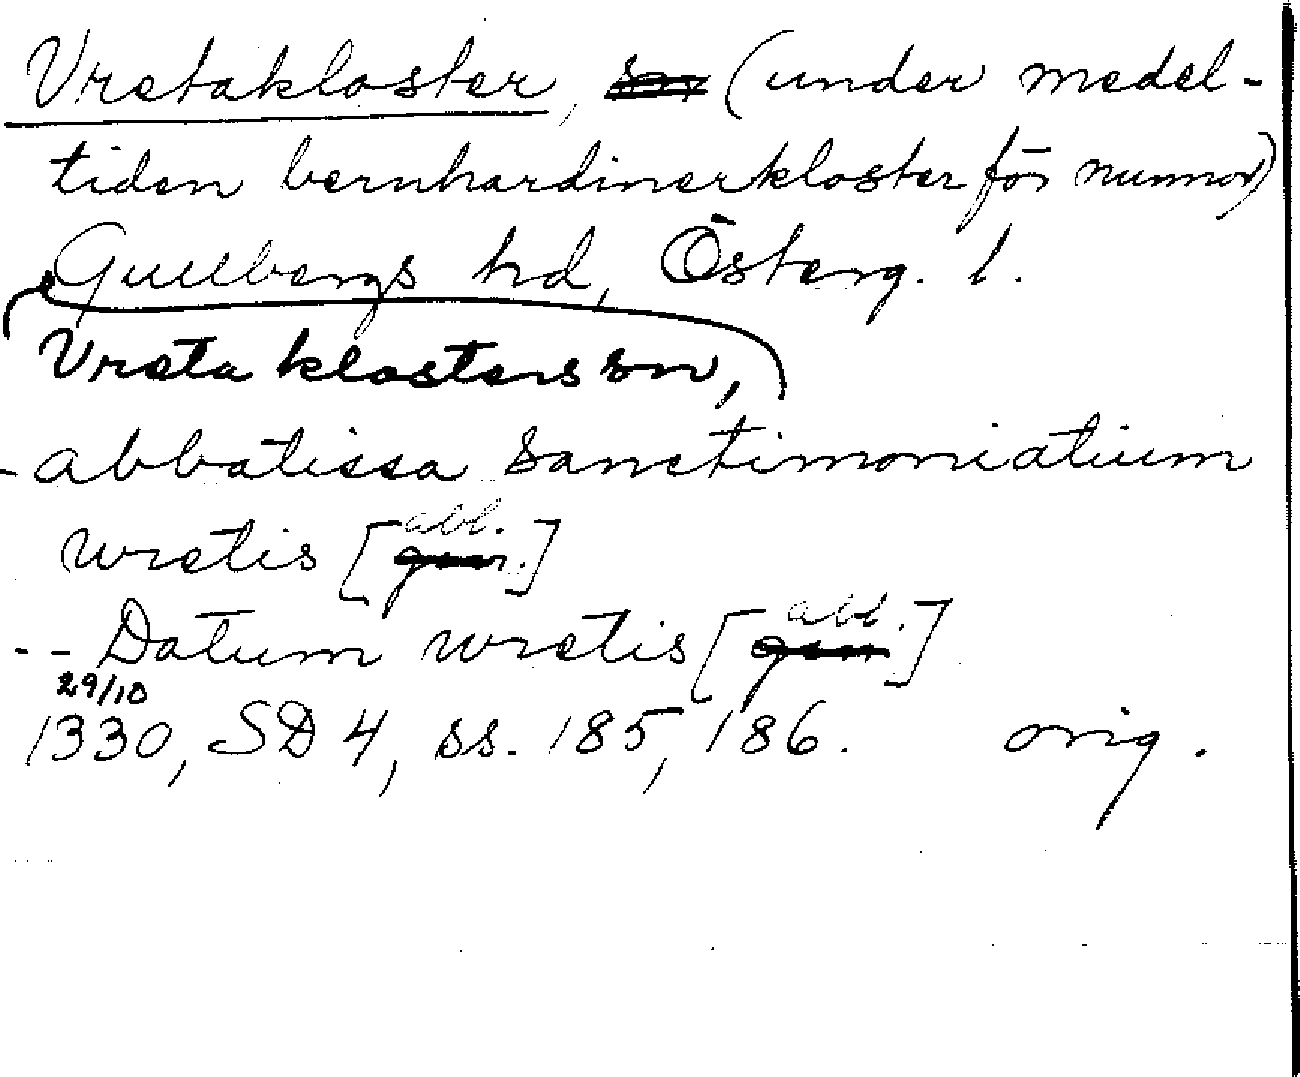 Vretakloster, sn (under medel-
tiden bernhardinerkloster för nunnor)
Gullbergs hd, Österg. l.
Vreta klosters sn,
- abbatissa sanctimonialium
wretis [abl.]
-- Datum wretis [abl.]
29/10
1330, SD 4, ss. 185, 186. orig.